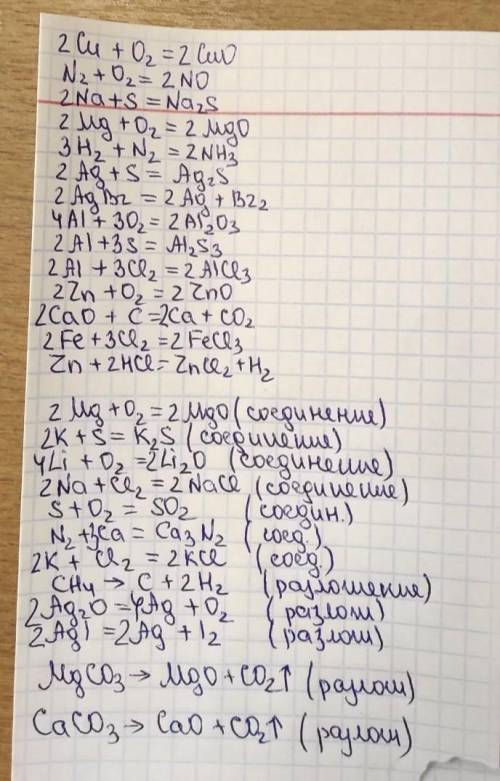 2Cu + O₂ = 2CuO
N₂ + O₂ = 2NO
2Na + S = Na₂S
2Mg + O₂ = 2MgO
3H₂ + N₂ = 2NH₃
2Ag + S = Ag₂S
2AgBr = 2Ag + Br₂
4Al + 3O₂ = 2Al₂O₃
2Al + 3S = Al₂S₃
2Al + 3Cl₂ = 2AlCl₃
2Zn + O₂ = 2ZnO
2CaO + C = 2Ca + CO₂
2Fe + 3Cl₂ = 2FeCl₃
Zn + 2HCl = ZnCl₂ + H₂
2Mg + O₂ = 2MgO (соединение)
2K + S = K₂S (соединение)
4Li + O₂ = 2Li₂O (соединение)
2Na + Cl₂ = 2NaCl (соединение)
S + O₂ = SO₂ (соедин.)
N₂ + 3Ca = Ca₃N₂ (соед.)
2K + Cl₂ = 2KCl (соед.)
CH₄ → C + 2H₂ (разложение)
2Ag₂O = 4Ag + O₂ (разлож)
2AgI = 2Ag + I₂ (разлож)
MgCO₃ → MgO + CO₂↑ (разлож)
CaCO₃ → CaO + CO₂↑ (разлож)